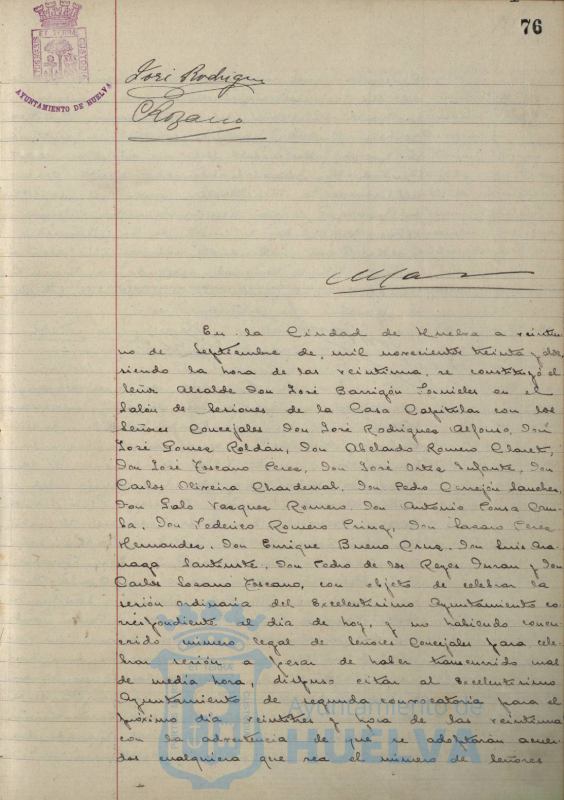 76
AYUNTAMIENTO DE HUELVA
José Rodrigu
CLozano
En la Ciudad de Huelva a veintiu
no de Septiembre de mil novecientos treinta y dos
siendo la hora de las veintiuna, se constituyó el
Señor Alcalde Don José Barrigón Fornieles en el
Salón de Sesiones de la Casa Capitular con los
Señores Concejales Don José Rodríguez Alfonso, Don
José Gómez Roldán, Don Abelardo Romero Claret,
Don José Toscano Pérez, Don José Ortiz Infante, Don
Carlos Oliveira Chardenal, Don Pedro Cerrejón Sánchez,
Don Galo Vázquez Romero, Don Antonio Ponsa Cam
ba, Don Federico Romero, Don Lázaro Pérez
Hernández, Don Enrique Bueno Cruz, Don Luis
Don Pedro de los Reyes Durán y Don
Carlos Lozano Toscano, con objeto de celebrar la
sesión ordinaria del Excelentísimo Ayuntamiento co
rrespondiente al día de hoy, y no habiendo concu
rrido número legal de Señores Concejales para cele
brar sesión a pesar de haber transcurrido más
de media hora, dispuso citar al Excelentísimo
Ayuntamiento de segunda convocatoria para el
próximo día veintitres y hora de las veintiuna
con la advertencia de que se adoptarán acuer
dos cualquiera que sea el número de Señores
Ayuntamiento de
HUELVA